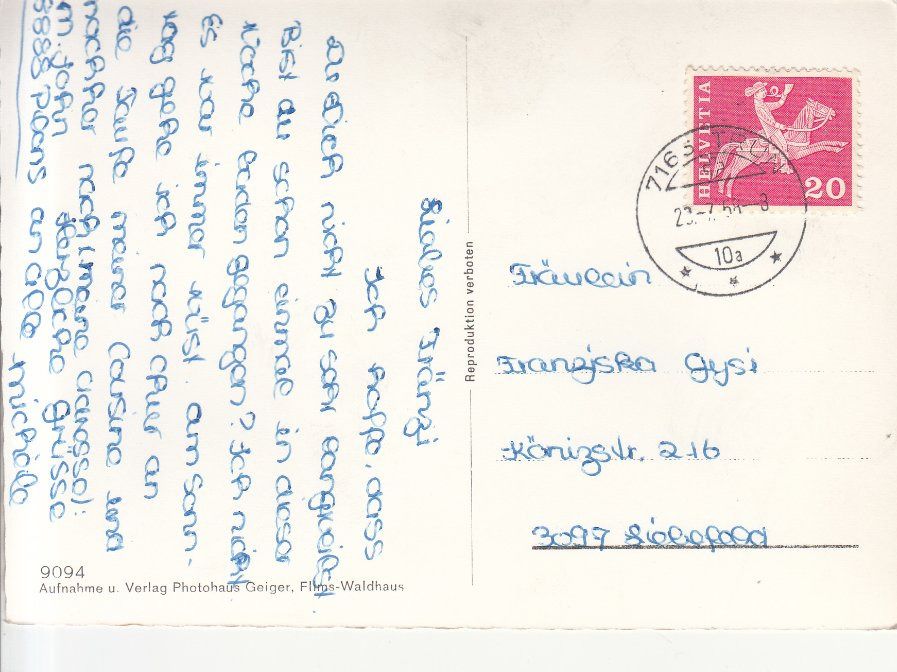 HELVETIA
20
10a
Fräulein
Franziska Gysi
Könizstr. 216
3097 Liebefeld
Reproduktion verboten
Liebes Fränzi
Ich hoffe, dass
du Dich nicht zu sehr langweilst.
Bist du schon einmal in dieser
Woche baden gegangen? Ich nicht
Es war immer wüst. am Sonn-
tag gehe ich nach Chur an
die Taufe meiner Cousine und
nachher nach (meine adresse):
Herzliche Grüsse
8888 Plons an alle Michèle
9094
Aufnahme u. Verlag Photohaus Geiger, Flims-Waldhaus